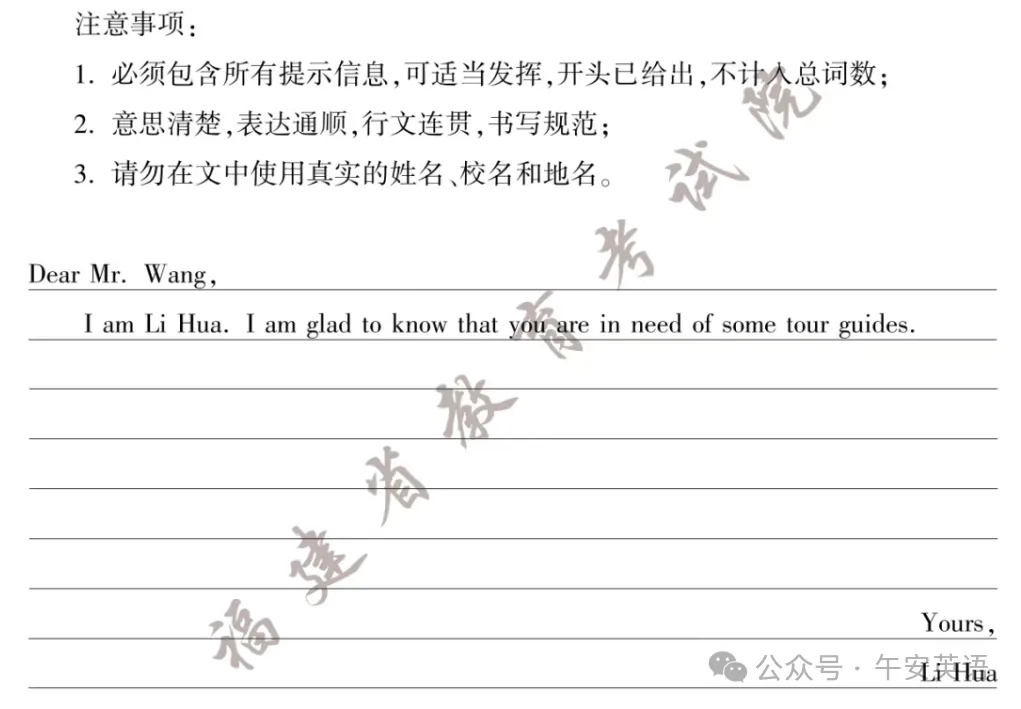 注意事项：
1. 必须包含所有提示信息,可适当发挥,开头已给出,不计入总词数；
2. 意思清楚,表达通顺,行文连贯,书写规范；
3. 请勿在文中使用真实的姓名、校名和地名。
Dear Mr. Wang,
I am Li Hua. I am glad to know that you are in need of some tour guides.
Yours,
Li Hua
福建省教育考试院
公众号 · 午安英语